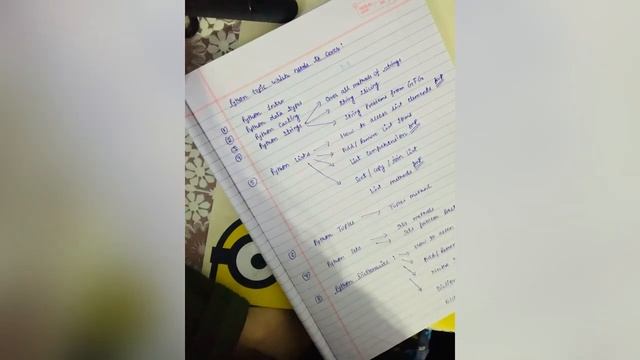 Python topic which needs to cover:
① Python Intro
② Python data types
③ Python Casting
④ Python Strings → Over all methods of strings
→ String Slicing
→ String Problems from GFG
⑤ Python Lists → How to access list elements
→ Add/Remove List Items
→ List Comprehension
→ Sort / Copy / Join List
List methods
⑥ Python Tuples → Tuples method
⑦ Python Sets → Sets methods
→ Sets
⑧ Python Dictionaries : → How to
→ Add/Remove